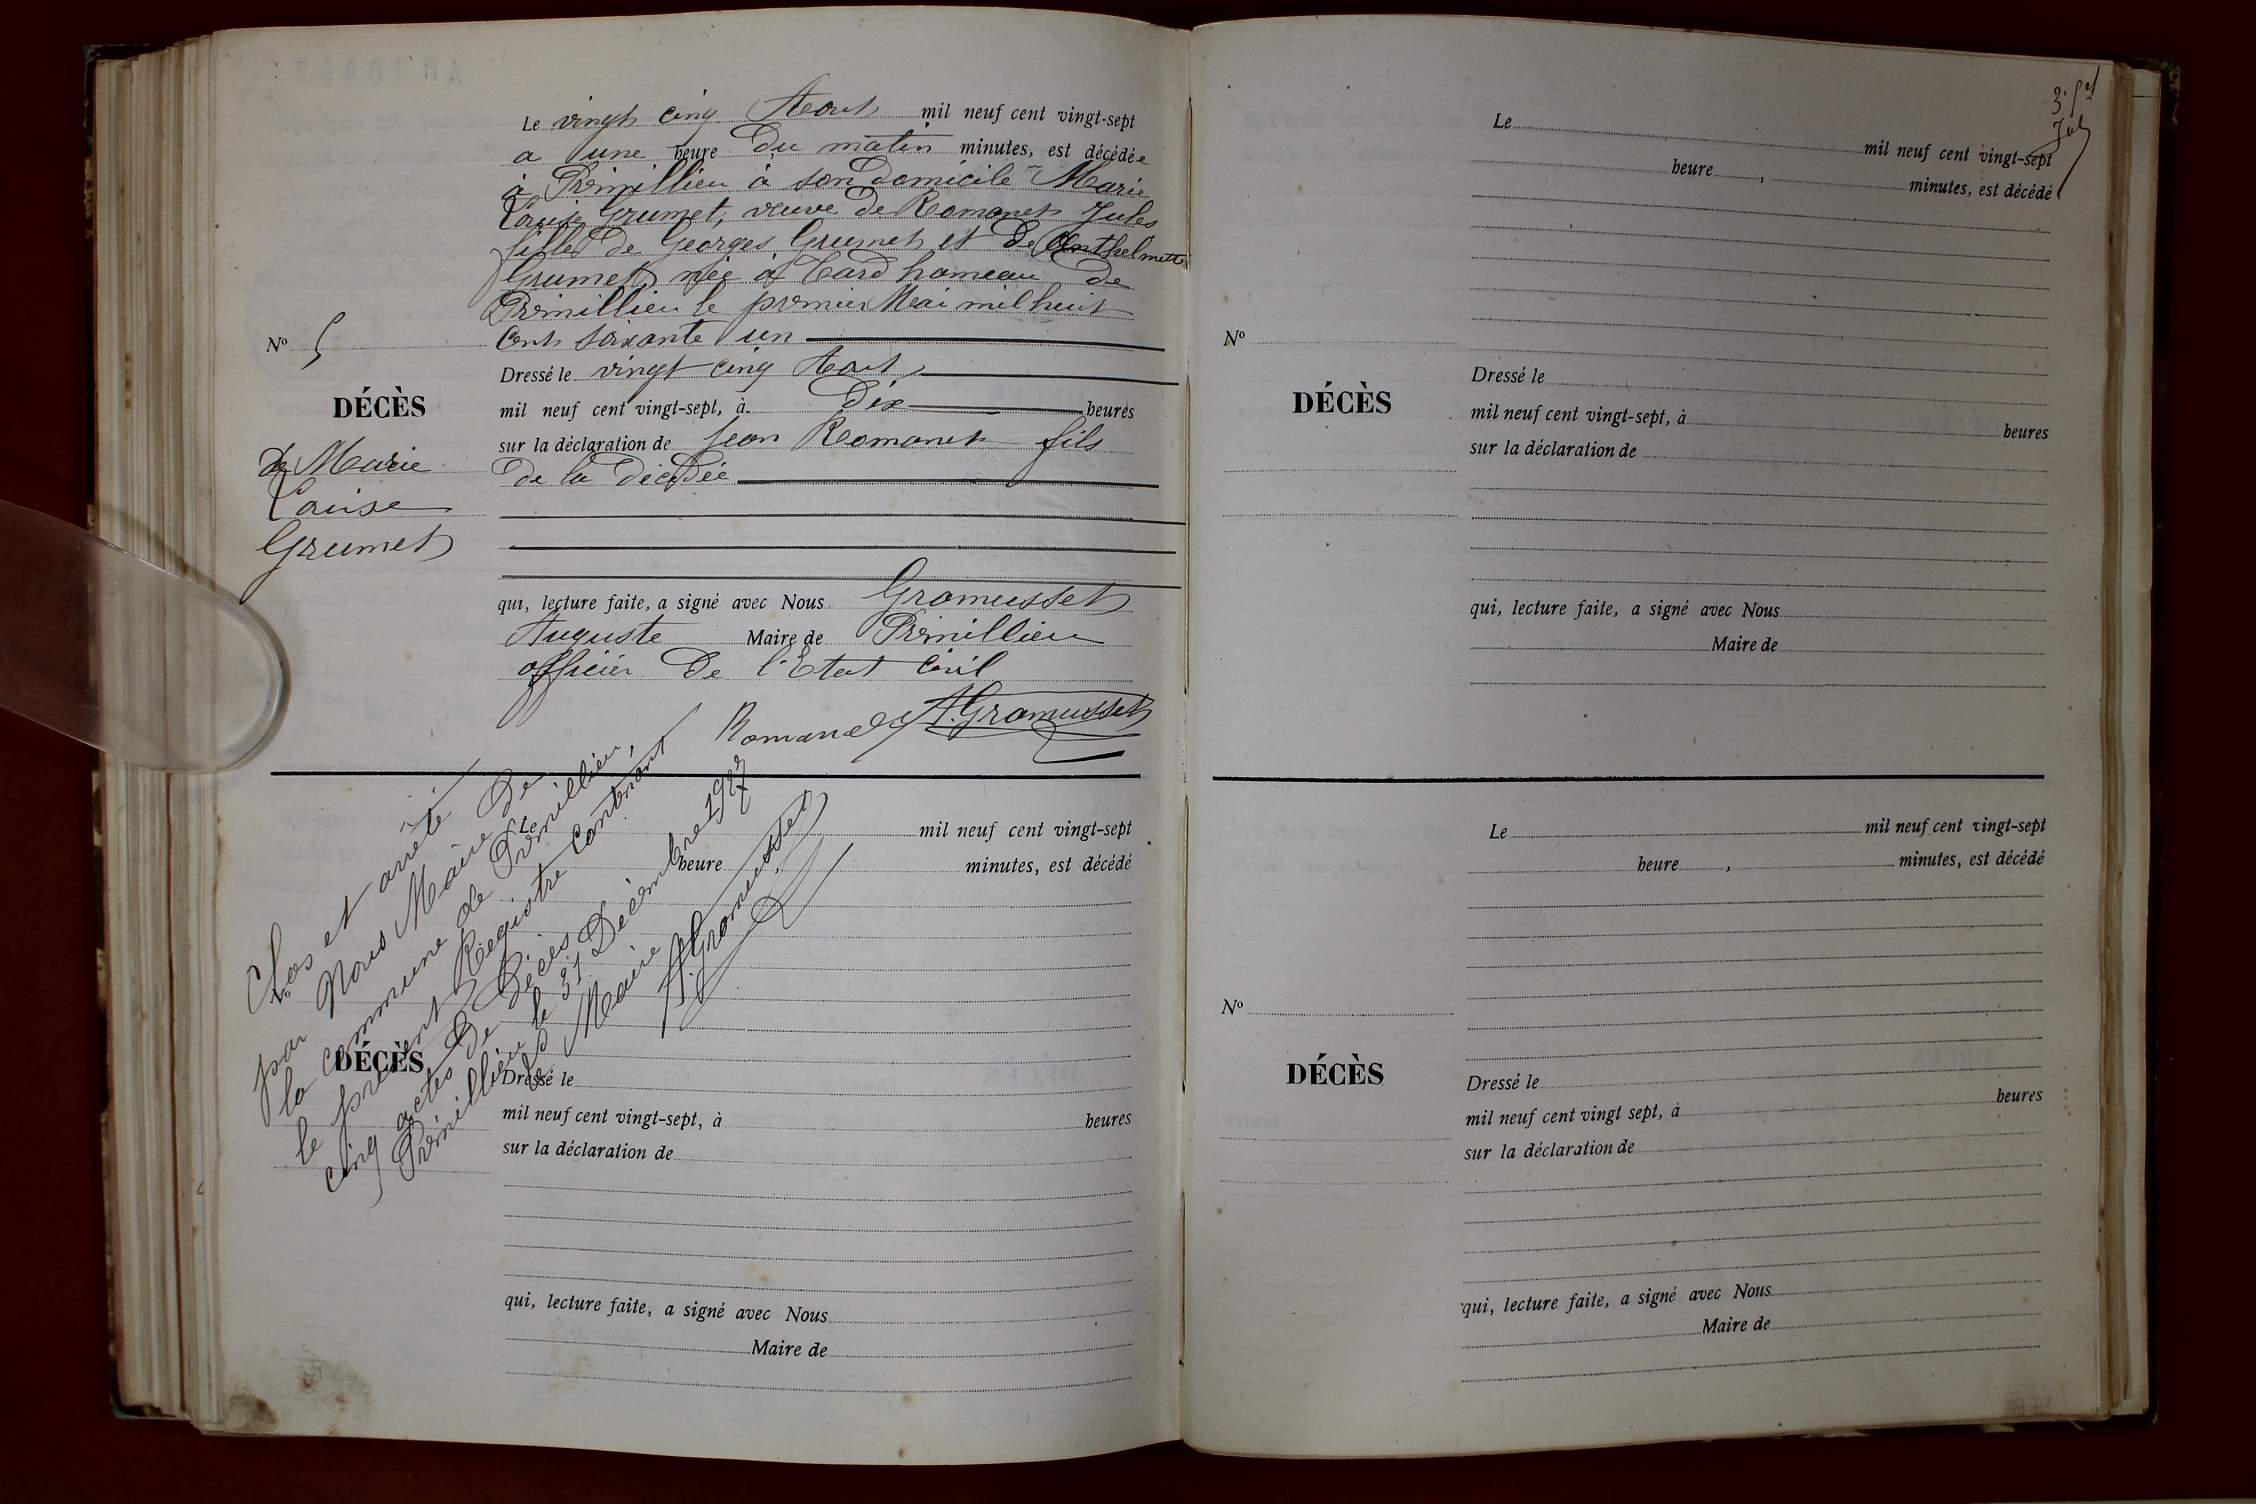 Le vingt cinq Aout mil neuf cent vingt-sept
a une heure du matin minutes, est décédée
à Prémillieu à son domicile Marie
Louise Grumet, veuve de Romanet Jules
fille de Georges Grumet et de Anthelmette
Grumet, née à hameau de
Prémillieu le premier Mai mil huit
cent soixante un
Nº 5
Dressé le vingt cinq Aout
DÉCÈS
mil neuf cent vingt-sept, à dix heures
sur la déclaration de Jean Romanet fils
de Marie
de la décédée
Louise
Grumet
qui, lecture faite, a signé avec Nous Gromusset
Auguste Maire de Prémillieu
officier de l'Etat civil
Romanet A. Gromusset
Clos et arrêté
par Nous Maire de
la commune de Prémillieu,
le présent Registre contenant
cinq actes de Décès
Prémillieu le 31 Décembre 1927
Le Maire
A. Gromusset
Le mil neuf cent vingt-sept
heure, minutes, est décédé
Nº
DÉCÈS
Dressé le
mil neuf cent vingt-sept, à heures
sur la déclaration de
qui, lecture faite, a signé avec Nous
Maire de
Le mil neuf cent vingt-sept
heure, minutes, est décédé
Nº
Dressé le
DÉCÈS
mil neuf cent vingt-sept, à heures
sur la déclaration de
qui, lecture faite, a signé avec Nous
Maire de
Le mil neuf cent vingt-sept
heure, minutes, est décédé
Nº
DÉCÈS
Dressé le
mil neuf cent vingt sept, à heures
sur la déclaration de
qui, lecture faite, a signé avec Nous
Maire de